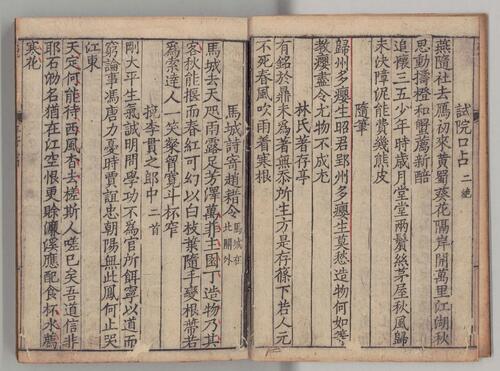 試院口占 二絶
燕隨社去鴈初來黄蜀葵花隔岸開萬里江湖秋
思動擣橙和蟹薦新醅
追隨三五少年時歲月堂堂兩鬢絲茅屋秋風歸
未決障泥能費幾熊皮
隨筆
歸州多癭生昭君郢州多癭生莫愁造物何如等
教癭盡令尤物不成尤
林氏著存亭
有銘於鼎未為著無忝所生方是存篠下若人元
不死春風吹雨着寒根
馬城詩寄趙耤令 馬城在北關外
馬城去天咫雨露足芳澤萬菲主園丁造物乃其
客秋能揠而春紅可幻以白枝葉隨手變根蔕若
為索達人一笑粲賀寛斗杯窄
挽李貫之郎中 二首
剛大平生氣誠明問學功不為官所餌寧以道而
窮論事馮唐力憂時賈誼忠朝陽無此鳳何止哭
江東
天定何能待西風杳去槎斯人嗟已矣吾道信非
耶石泐名猶在江空恨更賒濂溪應配食杯水薦
寒花